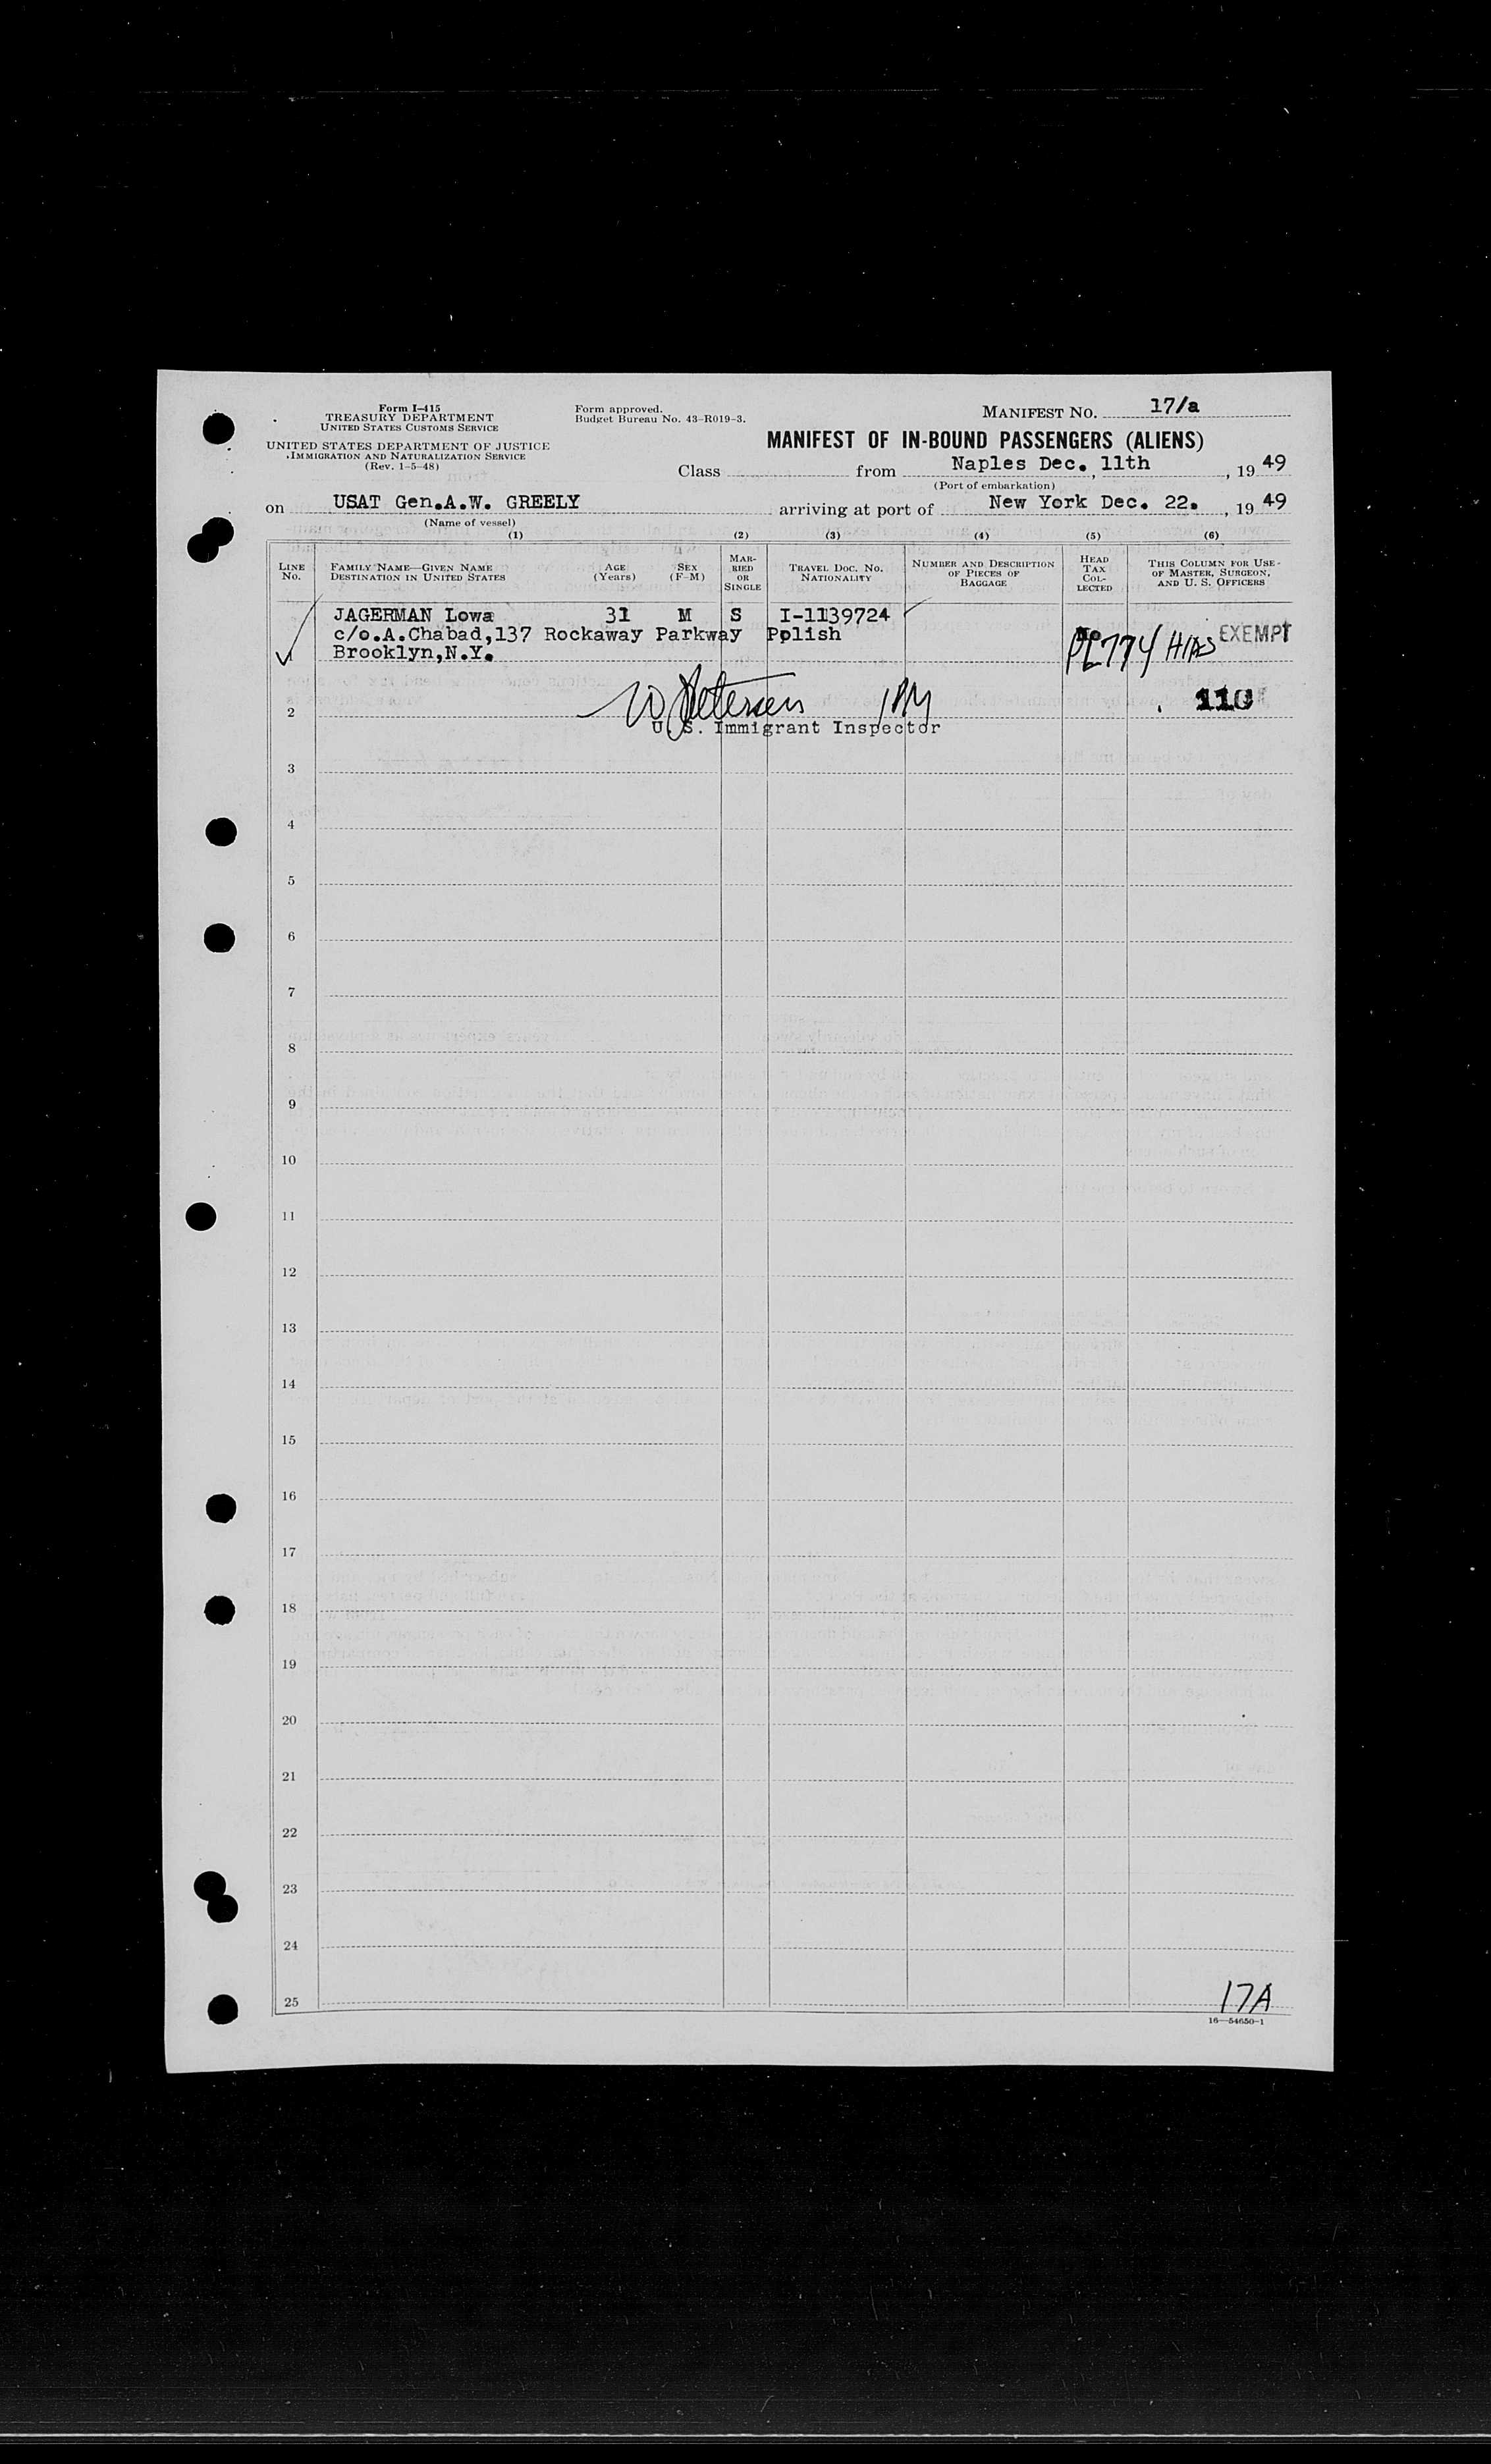 Form I-415
TREASURY DEPARTMENT
UNITED STATES CUSTOMS SERVICE
UNITED STATES DEPARTMENT OF JUSTICE
IMMIGRATION AND NATURALIZATION SERVICE
(Rev. 1-5-48)
Form approved.
Budget Bureau No. 43-R019-3.
MANIFEST NO. 17/a
MANIFEST OF IN-BOUND PASSENGERS (ALIENS)
Class from Naples Dec. 11th, 19 49
(Port of embarkation)
on USAT Gen.A.W. GREELY arriving at port of New York Dec. 22., 19 49
(Name of vessel)
(1) (2) (3) (4) (5) (6)
LINE NO.
FAMILY NAME—GIVEN NAME
DESTINATION IN UNITED STATES
AGE (Years)
SEX (F-M)
MARRIED OR SINGLE
TRAVEL DOC. NO.
NATIONALITY
NUMBER AND DESCRIPTION OF PIECES OF BAGGAGE
HEAD TAX COLLECTED
THIS COLUMN FOR USE OF MASTER, SURGEON, AND U. S. OFFICERS
JAGERMAN Lowa 31 M S I-1139724
c/o.A.Chabad,137 Rockaway Parkway Polish PL774 HIAS EXEMPT
Brooklyn,N.Y.
1
W Petersen
2 110
U.S. Immigrant Inspector
3
4
5
6
7
8
9
10
11
12
13
14
15
16
17
18
19
20
21
22
23
24
25
17A
16—54650-1